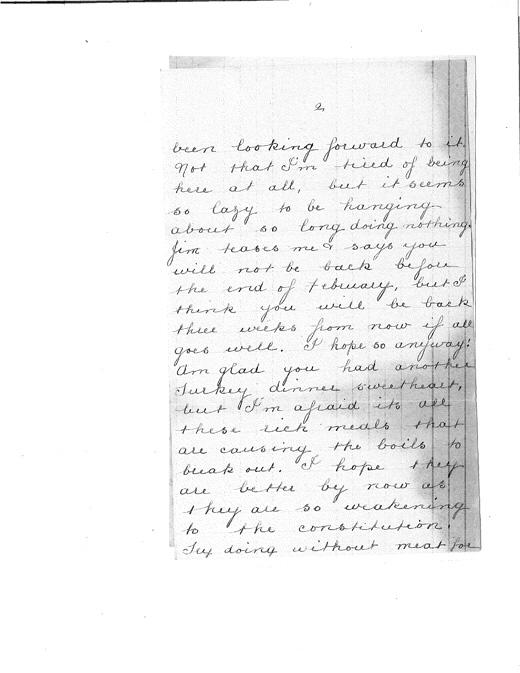 2
been looking forward to it.
Not that I'm tired of being
here at all, but it seems
so lazy to be hanging
about so long doing nothing.
Jim teases me & says you
will not be back before
the end of February, but I
think you will be back
three weeks from now if all
goes well. I hope so anyway!
Am glad you had another
Turkey dinner sweetheart,
but I'm afraid its all
these rich meals that
are causing the boils to
break out. I hope they
are better by now as
they are so weakening
to the constitution.
Try doing without meat for